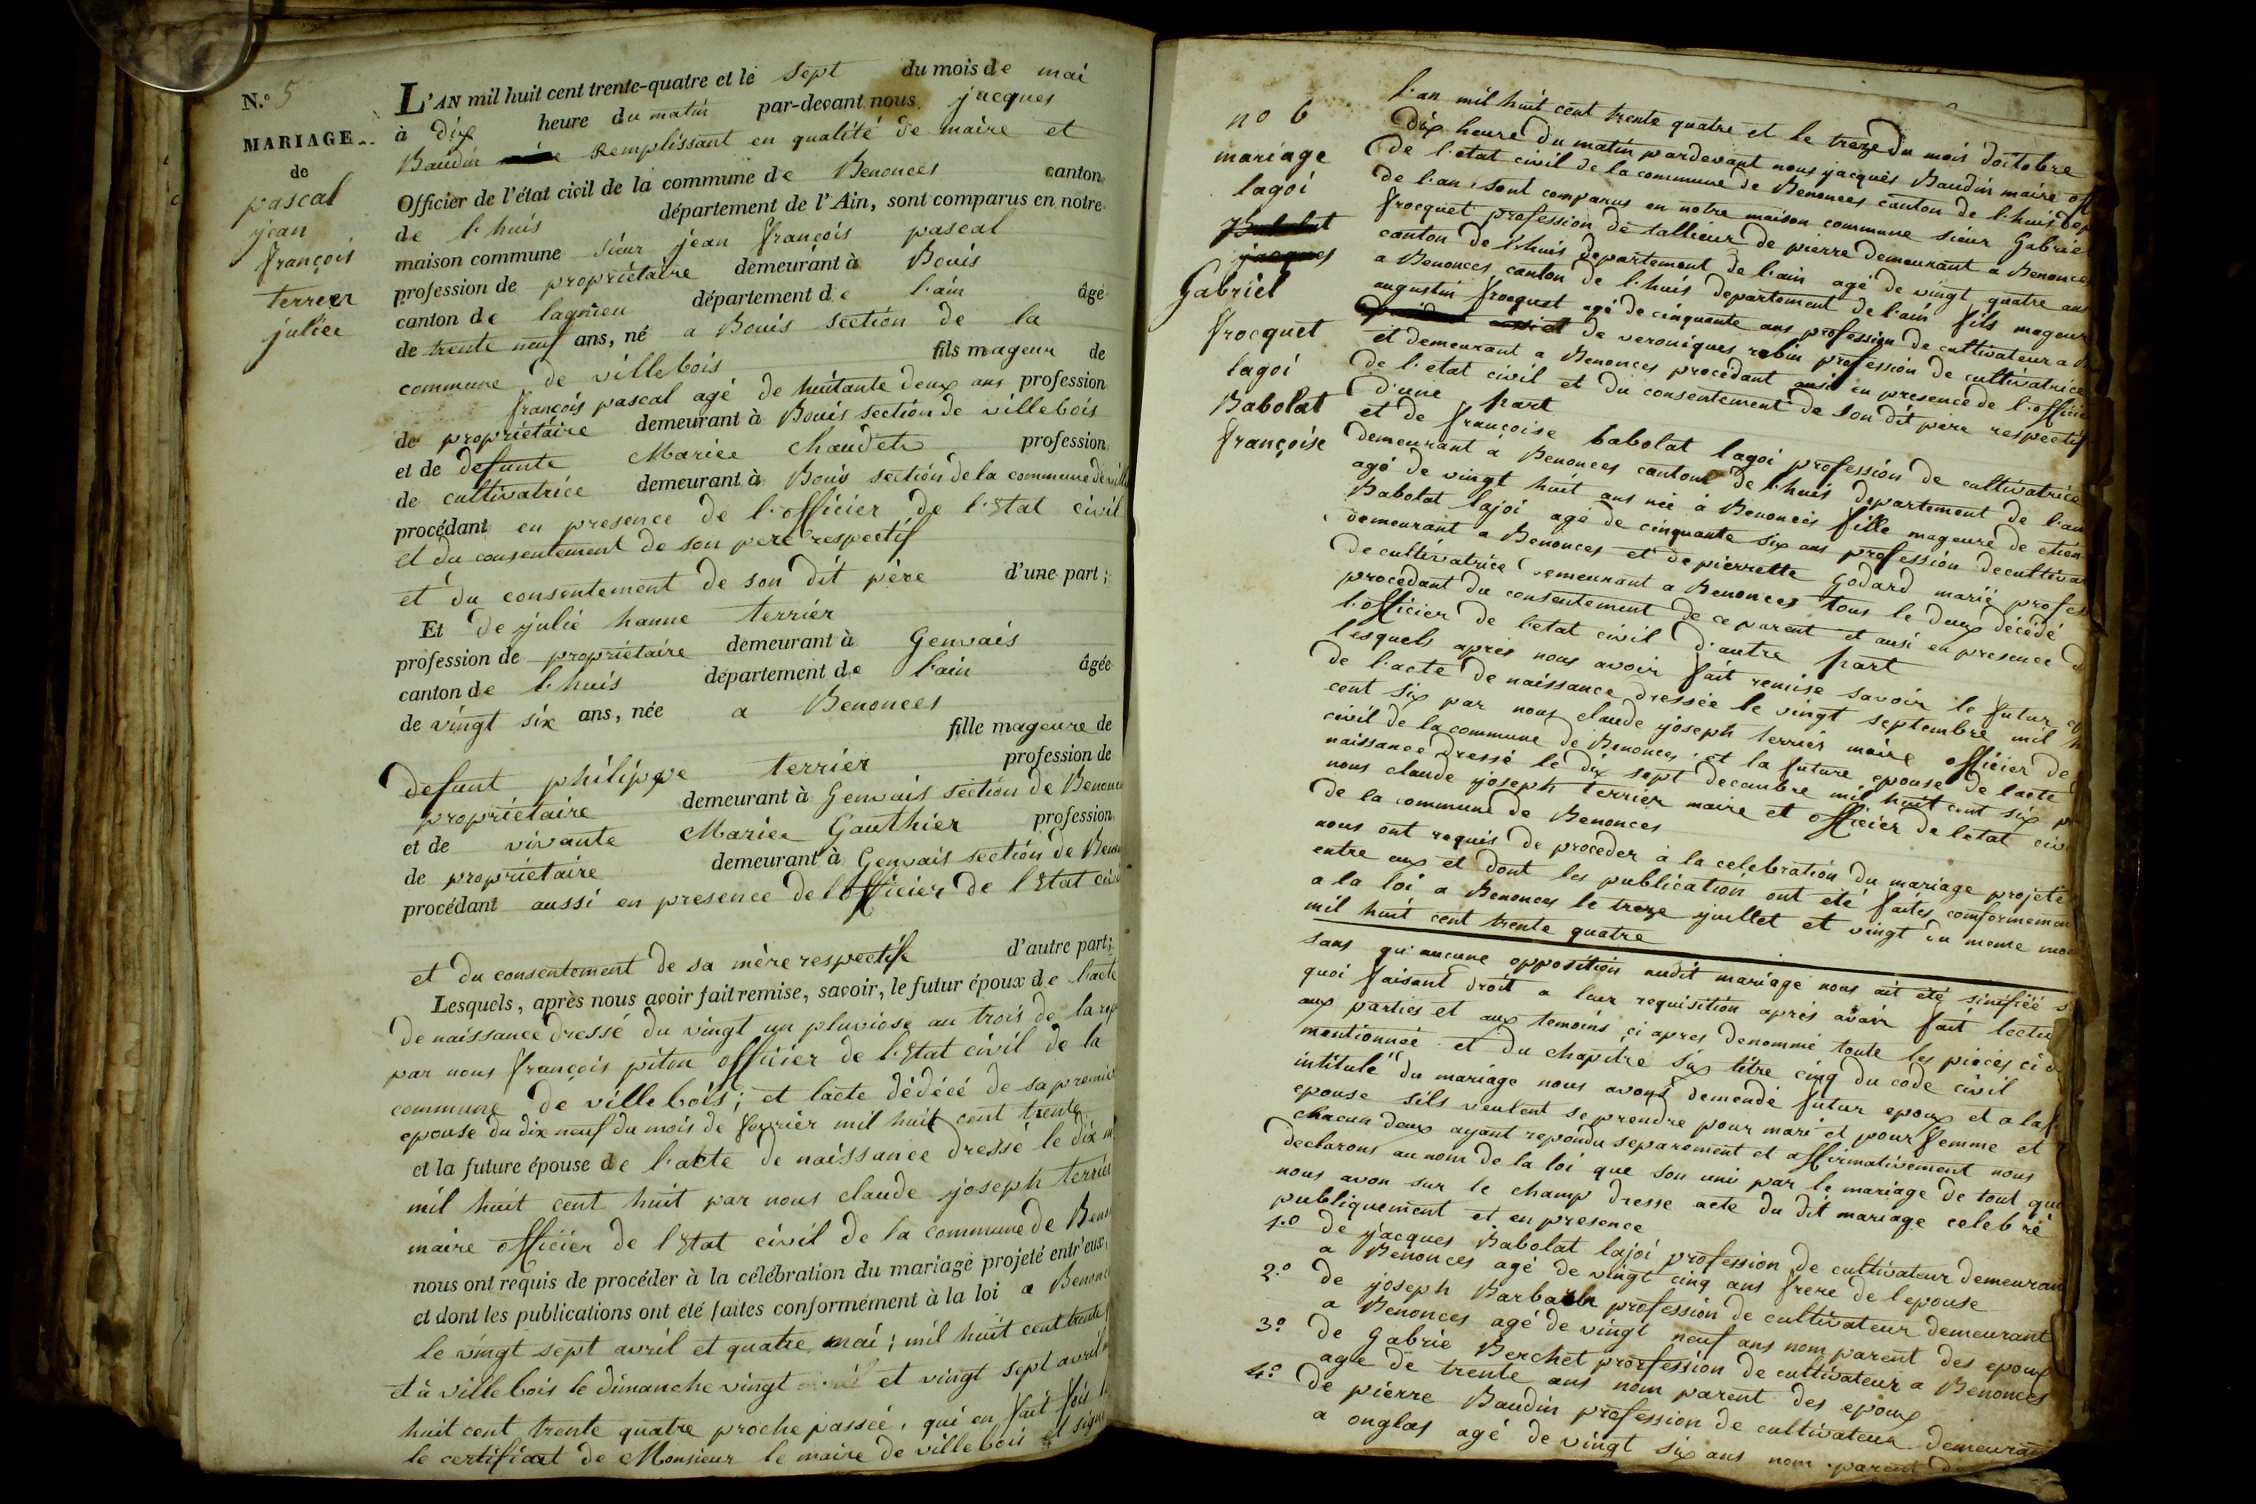 N.o 5
MARIAGE
de
pascal
jean
françois
terrier
juliee
L'AN mil huit cent trente-quatre et le sept du mois de mai
à dix heure du matin par-devant nous jacques
Baudin Remplissant en qualité de maire et
Officier de l'état civil de la commune de Benonces canton
de l.huis département de l'Ain, sont comparus en notre
maison commune sieur jean françois pascal
profession de propriétaire demeurant à Bouis
canton de lagnieu département de l.ain âgé
de trente neuf ans, né a Bouis section de la
commune de villebois fils mageur de
françois pascal agé de huitante deux ans profession
de propriétaire demeurant à Bouis section de villebois
et de defunte Mariee Chaudet profession
de cultivatrice demeurant à Bouis section de la commune de
procédant en presence de l.officier de l.Etat civil
et du consentement de son pere respectif
et du consentement de son dit père d'une part;
Et de julie hanne terrier
profession de propriétaire demeurant à Genvais
canton de l.huis département de l.ain âgée
de vingt six ans, née a Benonces
fille mageure de
defunt philippe terrier profession de
propriétaire demeurant à Genvais section de Benonces
et de vivante Mariee Gauthier profession
de propriétaire demeurant à Genvais section de
procédant aussi en presence de l'officier de l'Etat civil
et du consentement de sa mère respectife d'autre part;
Lesquels, après nous avoir fait remise, savoir, le futur époux de l'acte
de naissance dressé du vingt un pluviose an trois de la
par nous françois piton officier de l.Etat civil de la
commune de villebois; et lacte dédécé de sa
epouse du dix neuf du mois de fevrier mil huit cent trente
et la future épouse de l.acte de naissance dressé le dix
mil huit cent huit par nous claude joseph terrier
maire officier de l'Etat civil de la commune de
nous ont requis de procéder à la célébration du mariage projeté entr'eux,
et dont les publications ont été faites conformément à la loi a
le vingt sept avril et quatre mai; mil huit cent
et à villebois le dimanche vingt et vingt sept avril
huit cent trente quatre proche passée, qui en fait foi
le certificat de Monsieur le maire de villebois et
no 6
mariage
lagoi
Gabriel
frocquet
lagoi
Babolat
françoise
l.an mil huit cent trente quatre et le treze du mois doctobre
dix heure du matin pardevant nous jacques Baudin maire
de l.etat civil de la commune de Benonces canton de l.huis
de l.an, sont comparus en notre maison commune sieur Gabriel
frocquet profession de tallieur de pierre demeurant a Benonces
canton de l.huis departement de l.ain agé de vingt quatre ans
a Benonces canton de l.huis departement de l.ain fils mageur
augustin frocquet agé de cinquante ans profession de cultivateur a
de veroniques robin profession de cultivatrice
et demeurant a Benonces procedant ausi en presence de l.officier
de l.etat civil et du consentement de son dit père respectif
d'une part
et de françoise babolat lagoi profession de cultivatrice
demeurant a Benonces canton de l.huis departement de l.ain
agé de vingt huit ans née à Benonces fille mageure de
Babolat lajoi agé de cinquante six ans profession de
demeurant a Benonces et de pierrette Godard marié
de cultivatrice demeurant a Benonces tous le deux décédé
procedant du consentement de ce parent et ausi en presence
l.officier de l.etat civil d'autre part
lesquels après nous avoir fait remise savoir le futur
de l.acte de naissance dressée le vingt septembre mil
cent six par nous claude joseph terrier maire officier de
civil de la commune de Benonces; et la future epouse de lacte
naissance dressé le dix sept decembre mil huit cent six
nous claude joseph terrier maire et officier de letat
de la commune de Benonces
nous ont requis de proceder à la celebration du mariage projeté
entre eux et dont les publication ont été faites
a la loi a Benonces le treze juillet et vingt du meme
mil huit cent trente quatre
sans qu'aucune opposition audit mariage nous ait été sinifiée
quoi faisant droit a leur requisition après avoir fait
aux parties et aux temoins ci apres denommé toute les pieces
mentionnée et du chapitre six titre cinq du code civil
intitulé du mariage nous avons demendé futur epoux et a la
epouse sils veulent se prendre pour mari et pour femme et
chacun deux ayant repondu separement et affirmativement nous
declarons au nom de la loi que son uni par le mariage de tout
nous avon sur le champ dresse acte du dit mariage celebré
publiquement et en presence
1.o de jacques Babolat lajoi profession de cultivateur
a Benonces agé de vingt cinq ans frere de lepouse
2.o de joseph profession de cultivateur demeurant
a Benonces agé de vingt neuf ans nom parent des epoux
3o de Gabrie Berchet profession de cultivateur a Benonces
age de trente ans nom parent des epoux
4.o de pierre Baudin profession de cultivateur
a onglas agé de vingt six ans nom parent